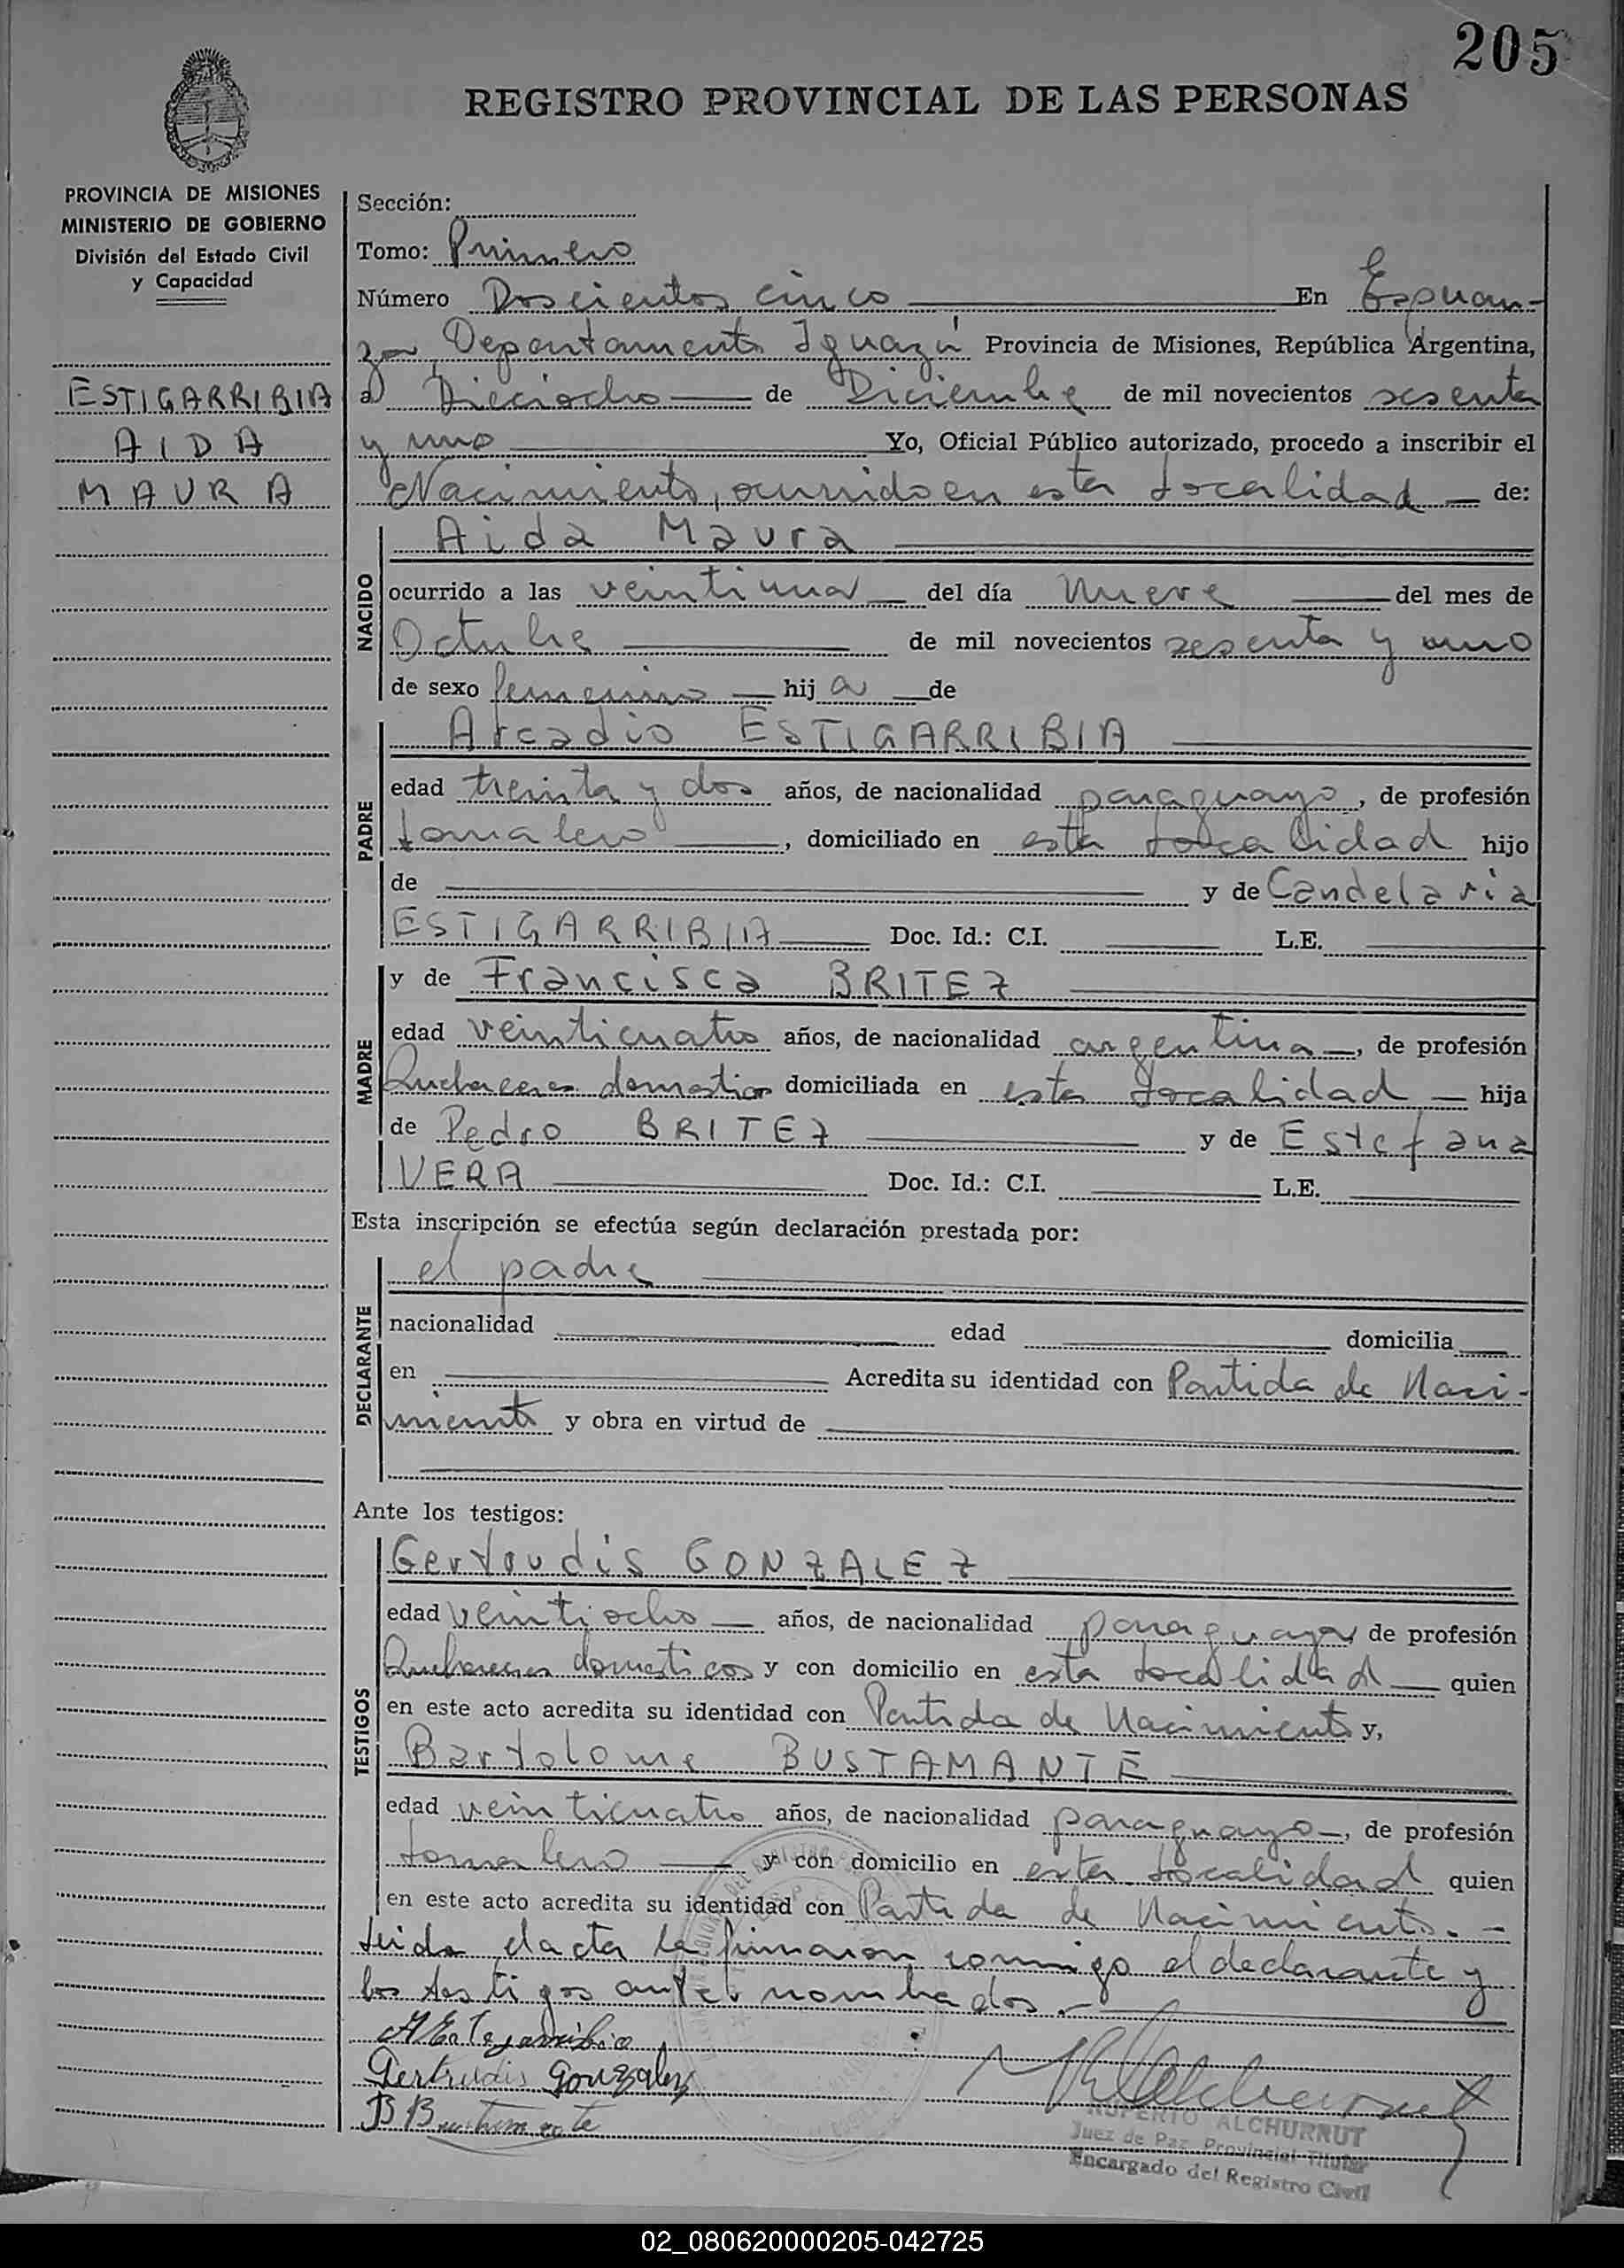 205
REGISTRO PROVINCIAL DE LAS PERSONAS
PROVINCIA DE MISIONES
MINISTERIO DE GOBIERNO
División del Estado Civil
y Capacidad
ESTIGARRIBIA
AIDA
MAURA
Sección:
Tomo: Primero
Número Doscientos cinco En Esperan-
za, Departamento Iguazú Provincia de Misiones, República Argentina,
a Dieciocho de Diciembre de mil novecientos sesenta
y uno Yo, Oficial Público autorizado, procedo a inscribir el
Nacimiento, ocurrido en esta localidad de:
NACIDO
Aida Maura
ocurrido a las veintiuna del día nueve del mes de
Octubre de mil novecientos sesenta y uno
de sexo femenino hija de
PADRE
Arcadio ESTIGARRIBIA
edad treinta y dos años, de nacionalidad paraguayo, de profesión
jornalero, domiciliado en esta localidad hijo
de y de Candelaria
ESTIGARRIBIA Doc. Id.: C.I. L.E.
MADRE
y de Francisca BRITEZ
edad veinticuatro años, de nacionalidad argentina, de profesión
Quehaceres domesticos domiciliada en esta localidad hija
de Pedro BRITEZ y de Estefana
VERA Doc. Id.: C.I. L.E.
Esta inscripción se efectúa según declaración prestada por:
DECLARANTE
el padre
nacionalidad edad domicilia
en Acredita su identidad con Partida de Naci-
miento y obra en virtud de
Ante los testigos:
TESTIGOS
Gertrudis GONZALEZ
edad veintiocho años, de nacionalidad paraguaya de profesión
Quehaceres domesticos y con domicilio en esta localidad quien
en este acto acredita su identidad con Partida de Nacimiento y,
Bartolome BUSTAMANTE
edad veinticuatro años, de nacionalidad paraguayo, de profesión
jornalero y con domicilio en esta localidad quien
en este acto acredita su identidad con Partida de Nacimiento.-
Leida el acta la firmaron conmigo el declarante y
los testigos antes nombrados.-
A Estigarribia
Gertrudis Gonzalez
B Bustamante
RUPERTO ALCHURRUT
Juez de Paz Provincial Titular
Encargado del Registro Civil
02_080620000205-042725